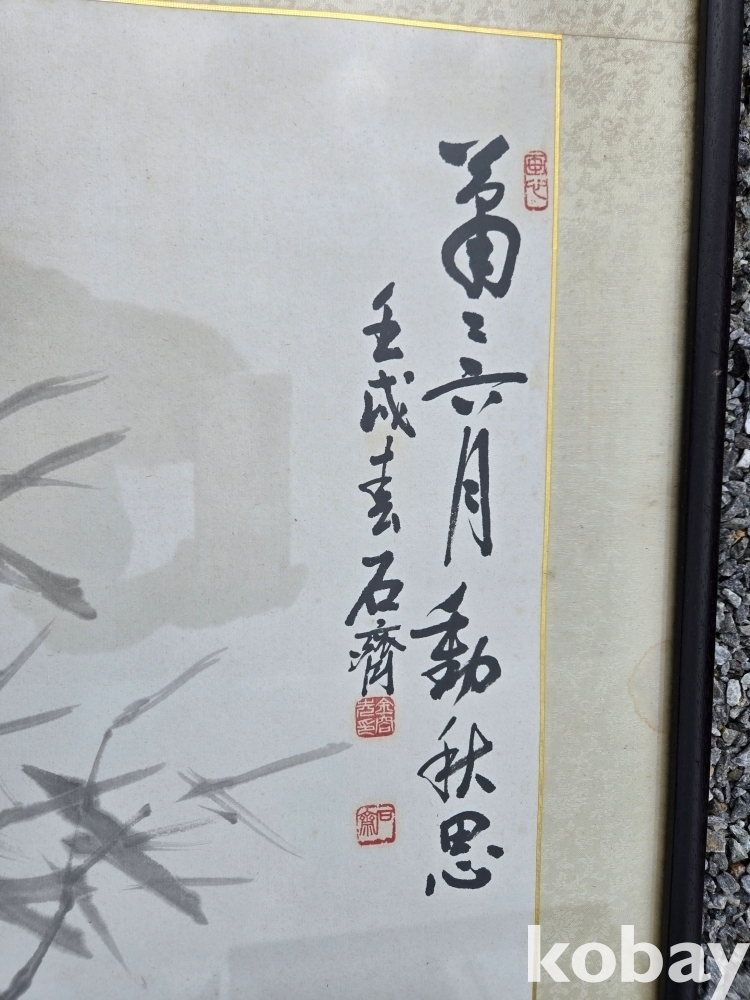 蕭〻六月動秋思
壬戌春石齊
kobay